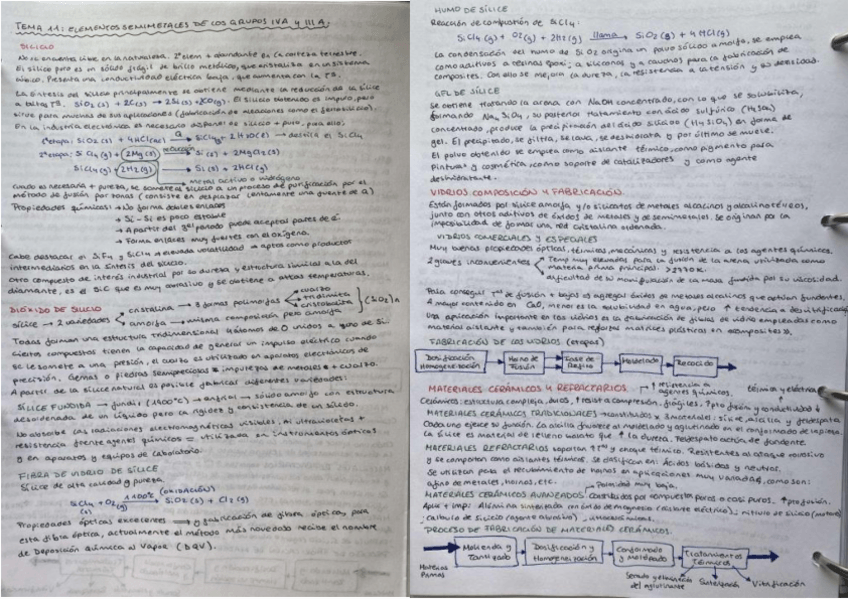 TEMA 11: ELEMENTOS SEMIMETALES DE LOS GRUPOS IVA y IIIA
SILICIO
No se encuentra libre en la naturaleza. 2º elem + abundante en la corteza terrestre.
El silicio puro es un sólido frágil de brillo metálico, que cristaliza en un sistema
cúbico. Presenta una conductividad eléctrica baja, que aumenta con la Tª.
La síntesis del silicio principalmente se obtiene mediante la reducción de su sílice
a altas Tª. SiO2(s) + 2C(s) → 2Si(s) + 2CO(g). El silicio obtenido es impuro, pero
sirve para muchas de sus aplicaciones (fabricación de aleaciones como el ferrosilicio).
En la industria electrónica es necesario disponer de silicio + puro, para ello:
1ª etapa: SiO2(s) + 4HCl(ac) → SiCl4 + 2H2O(l) → destila el SiCl4
2ª etapa: SiCl4(g) + 2Mg(s) → Si(s) + 2MgCl2(s)
SiCl4(g) + 2H2(g) → Si(s) + 4HCl(g)
metal activo o hidrógeno
Cuando es necesaria + pureza, se somete al silicio a un proceso de purificación por el
método de fusión por zonas (consiste en desplazar lentamente una fuente de Q)
Propiedades químicas: → No forma dobles enlaces
→ Si-Si es poco estable
→ A partir del 3er periodo puede aceptar pares de e-
→ Forma enlaces muy fuertes con el oxígeno.
Cabe destacar el SiF4 y SiCl4 → elevada volatilidad → aptos como productos
intermediarios en la síntesis del silicio.
Otro compuesto de interés industrial por su dureza y estructura similar a la del
diamante, es el SiC que es muy corrosivo y se obtiene a altas temperaturas.
DIÓXIDO DE SILICIO
sílice → 2 variedades cristalina → 3 formas polimorfas cuarzo tridimita cristobalita (SiO2)n
amorfa → misma composición pero amorfa
Todas forman una estructura tridimensional 4 átomos de O unidos a uno de Si.
Ciertos compuestos tienen la capacidad de generar un impulso eléctrico cuando
se le somete a una presión, el cuarzo es utilizado en aparatos electrónicos de
precisión. Gemas o piedras semipreciosas = impurezas de metales + cuarzo.
A partir de la sílice natural es posible fabricar diferentes variedades:
SÍLICE FUNDIDA → fundir (1900ºC) → enfriar → sólido amorfo con estructura
desordenada de un líquido pero la rigidez y consistencia de un sólido.
No absorbe las radiaciones electromagnéticas visibles, ni ultravioletas +
resistencia frente agentes químicos = utilizada en instrumentos ópticos
y en aparatos y equipos de laboratorio.
FIBRA DE VIDRIO DE SÍLICE
Sílice de alta calidad y pureza.
SiCl4 + O2(g) 1100ºC (OXIDACIÓN) → SiO2(s) + Cl2(g)
Propiedades ópticas excelentes → fabricación de fibra óptica, para
esta fibra óptica, actualmente el método más novedoso recibe el nombre
de Deposición Química al Vapor (DQV).
HUMO DE SÍLICE
Reacción de combustión de SiCl4.
SiCl4(g) + O2(g) + 2H2(g) llama → SiO2(g) + 4HCl(g)
La condensación del humo de SiO2 origina un polvo sólido amorfo, se emplea
como aditivos a resinas epoxi, a siliconas y a cauchos para la fabricación de
composites. Con ello se mejora la dureza, la resistencia a la tensión y su densidad.
GEL DE SÍLICE
Se obtiene tratando la arena con NaOH concentrado, con lo que se solubiliza,
formando Na4SiO4, su posterior tratamiento con ácido sulfúrico (H2SO4)
concentrado, produce la precipitación del ácido silícico (H4SiO4) en forma de
gel. El precipitado, se filtra, se lava, se deshidrata y por último se muele.
El polvo obtenido se emplea como aislante térmico, como pigmento para
pinturas y cosmética, como soporte de catalizadores y como agente
deshidratante.
VIDRIOS. COMPOSICIÓN Y FABRICACIÓN.
Están formados por sílice amorfa y/o silicatos de metales alcalinos y alcalinotérreos,
junto con otros aditivos de óxidos de metales y de semimetales. Se originan por la
imposibilidad de formar una red cristalina ordenada.
VIDRIOS COMERCIALES Y ESPECIALES
Muy buenas propiedades ópticas, térmicas, mecánicas y resistencia a los agentes químicos.
2 graves inconvenientes Temp muy elevadas para la fusión de la arena utilizada como
materia prima principal.
dificultad de su manipulación de la masa fundida por su viscosidad.
Para conseguir Tªs de fusión + bajas se agregan óxidos de metales alcalinos que actúan fundentes.
A mayor contenido en CaO, menor es la solubilidad en agua, pero ↑ tendencia a desvitrificación
Una aplicación importante en los vidrios es la fabricación de fibras de vidrio empleadas como
material aislante y también para reforzar matrices plásticas en composites.
FABRICACIÓN DE LOS VIDRIOS (etapas)
Dosificación Homogeneización → Horno de Fusión → Fase de Refino → Moldeado → Recocido
MATERIALES CERÁMICOS Y REFRACTARIOS → ↑ resistencia a agentes químicos. térmica y eléctrica
Cerámicos: estructura compleja, duros, ↑ resist a compresión, frágiles. ↑ pto fusión y conductividad ↓
MATERIALES CERÁMICOS TRADICIONALES → constituidos x 3 materiales: sílice, arcilla y feldespato
Cada uno ejerce su función. La arcilla favorece el moldeado y aglutinado en el conformado de la pieza.
La sílice es material de relleno mientras que ↑ la dureza. Feldespato actúa de fundente.
MATERIALES REFRACTARIOS soportan ↑ Tª y choque térmico. Resistentes al ataque corrosivo
y se comportan como aislantes térmicos. Se clasifican en: Ácidos, básicos y neutros.
Se utilizan para el recubrimiento de hornos en aplicaciones muy variadas, como son:
afino de metales, hornos, etc. Porosidad muy baja.
MATERIALES CERÁMICOS AVANZADOS. Constituidos por compuestos puros o casi puros. ↑ pto fusión.
Aplic + imp: Alúmina sinterizada con óxido de magnesio (aislante eléctrico); nitruro de silicio (motores)
; carburo de silicio (agente abrasivo)
PROCESO DE FABRICACIÓN DE MATERIALES CERÁMICOS.
Materias Primas → Molienda y Tamizado → Dosificación y Homogeneización → Conformado y moldeado → Tratamientos Térmicos
Secado y eliminación del aglutinante Sinterización Vitrificación